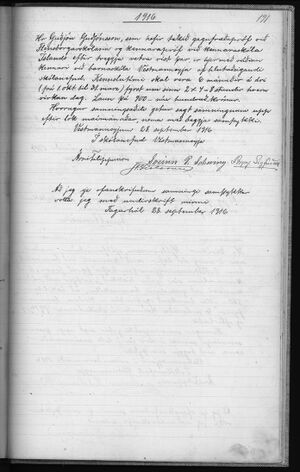 1916
191
Hr Guðjón Guðjónsson, sem hefir tekið gagnfræðapróf við
Flensborgarskólann og kennarapróf við kennaraskóla
Íslands eftir tveggja vetra vist þar, er hjer með ráðinn
kennari við barnaskóla Vestmannaeyja af hlutaðeigandi
skólanefnd. Kenslutími skal vera 6 mánuðir á ári
(frá 1 okt til 31. mars) fyrst um sinn 2 x 4 stundir hvern
virkan dag. Laun kr 900 - níu hundruð krónur.
Hvorugur samningsaðila getur sagt samningnum upp
eftir lok maímánaðar, nema með beggja samþykki.
Vestmannaeyjum 28 september 1916
Í skólanefnd Vestmannaeyja
Árni Filippusson
Sveinn P. Scheving
Að jeg sje ofanskrifuðum samningi samþykkur
votta jeg með undirskrift minni
Fagurhól 28. september 1916